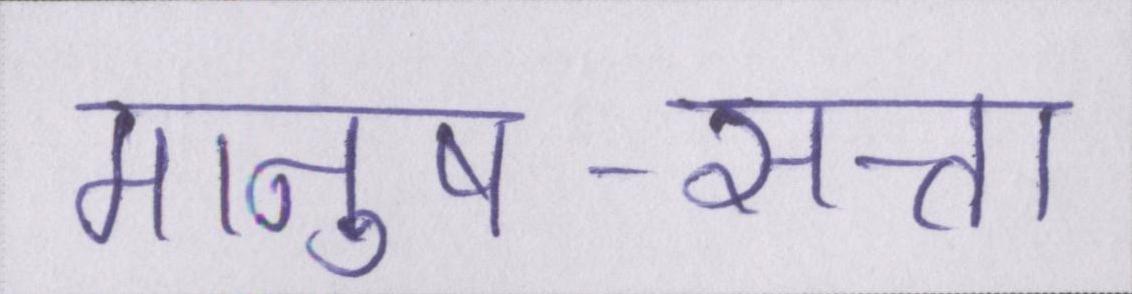 मानुष-सत्ता